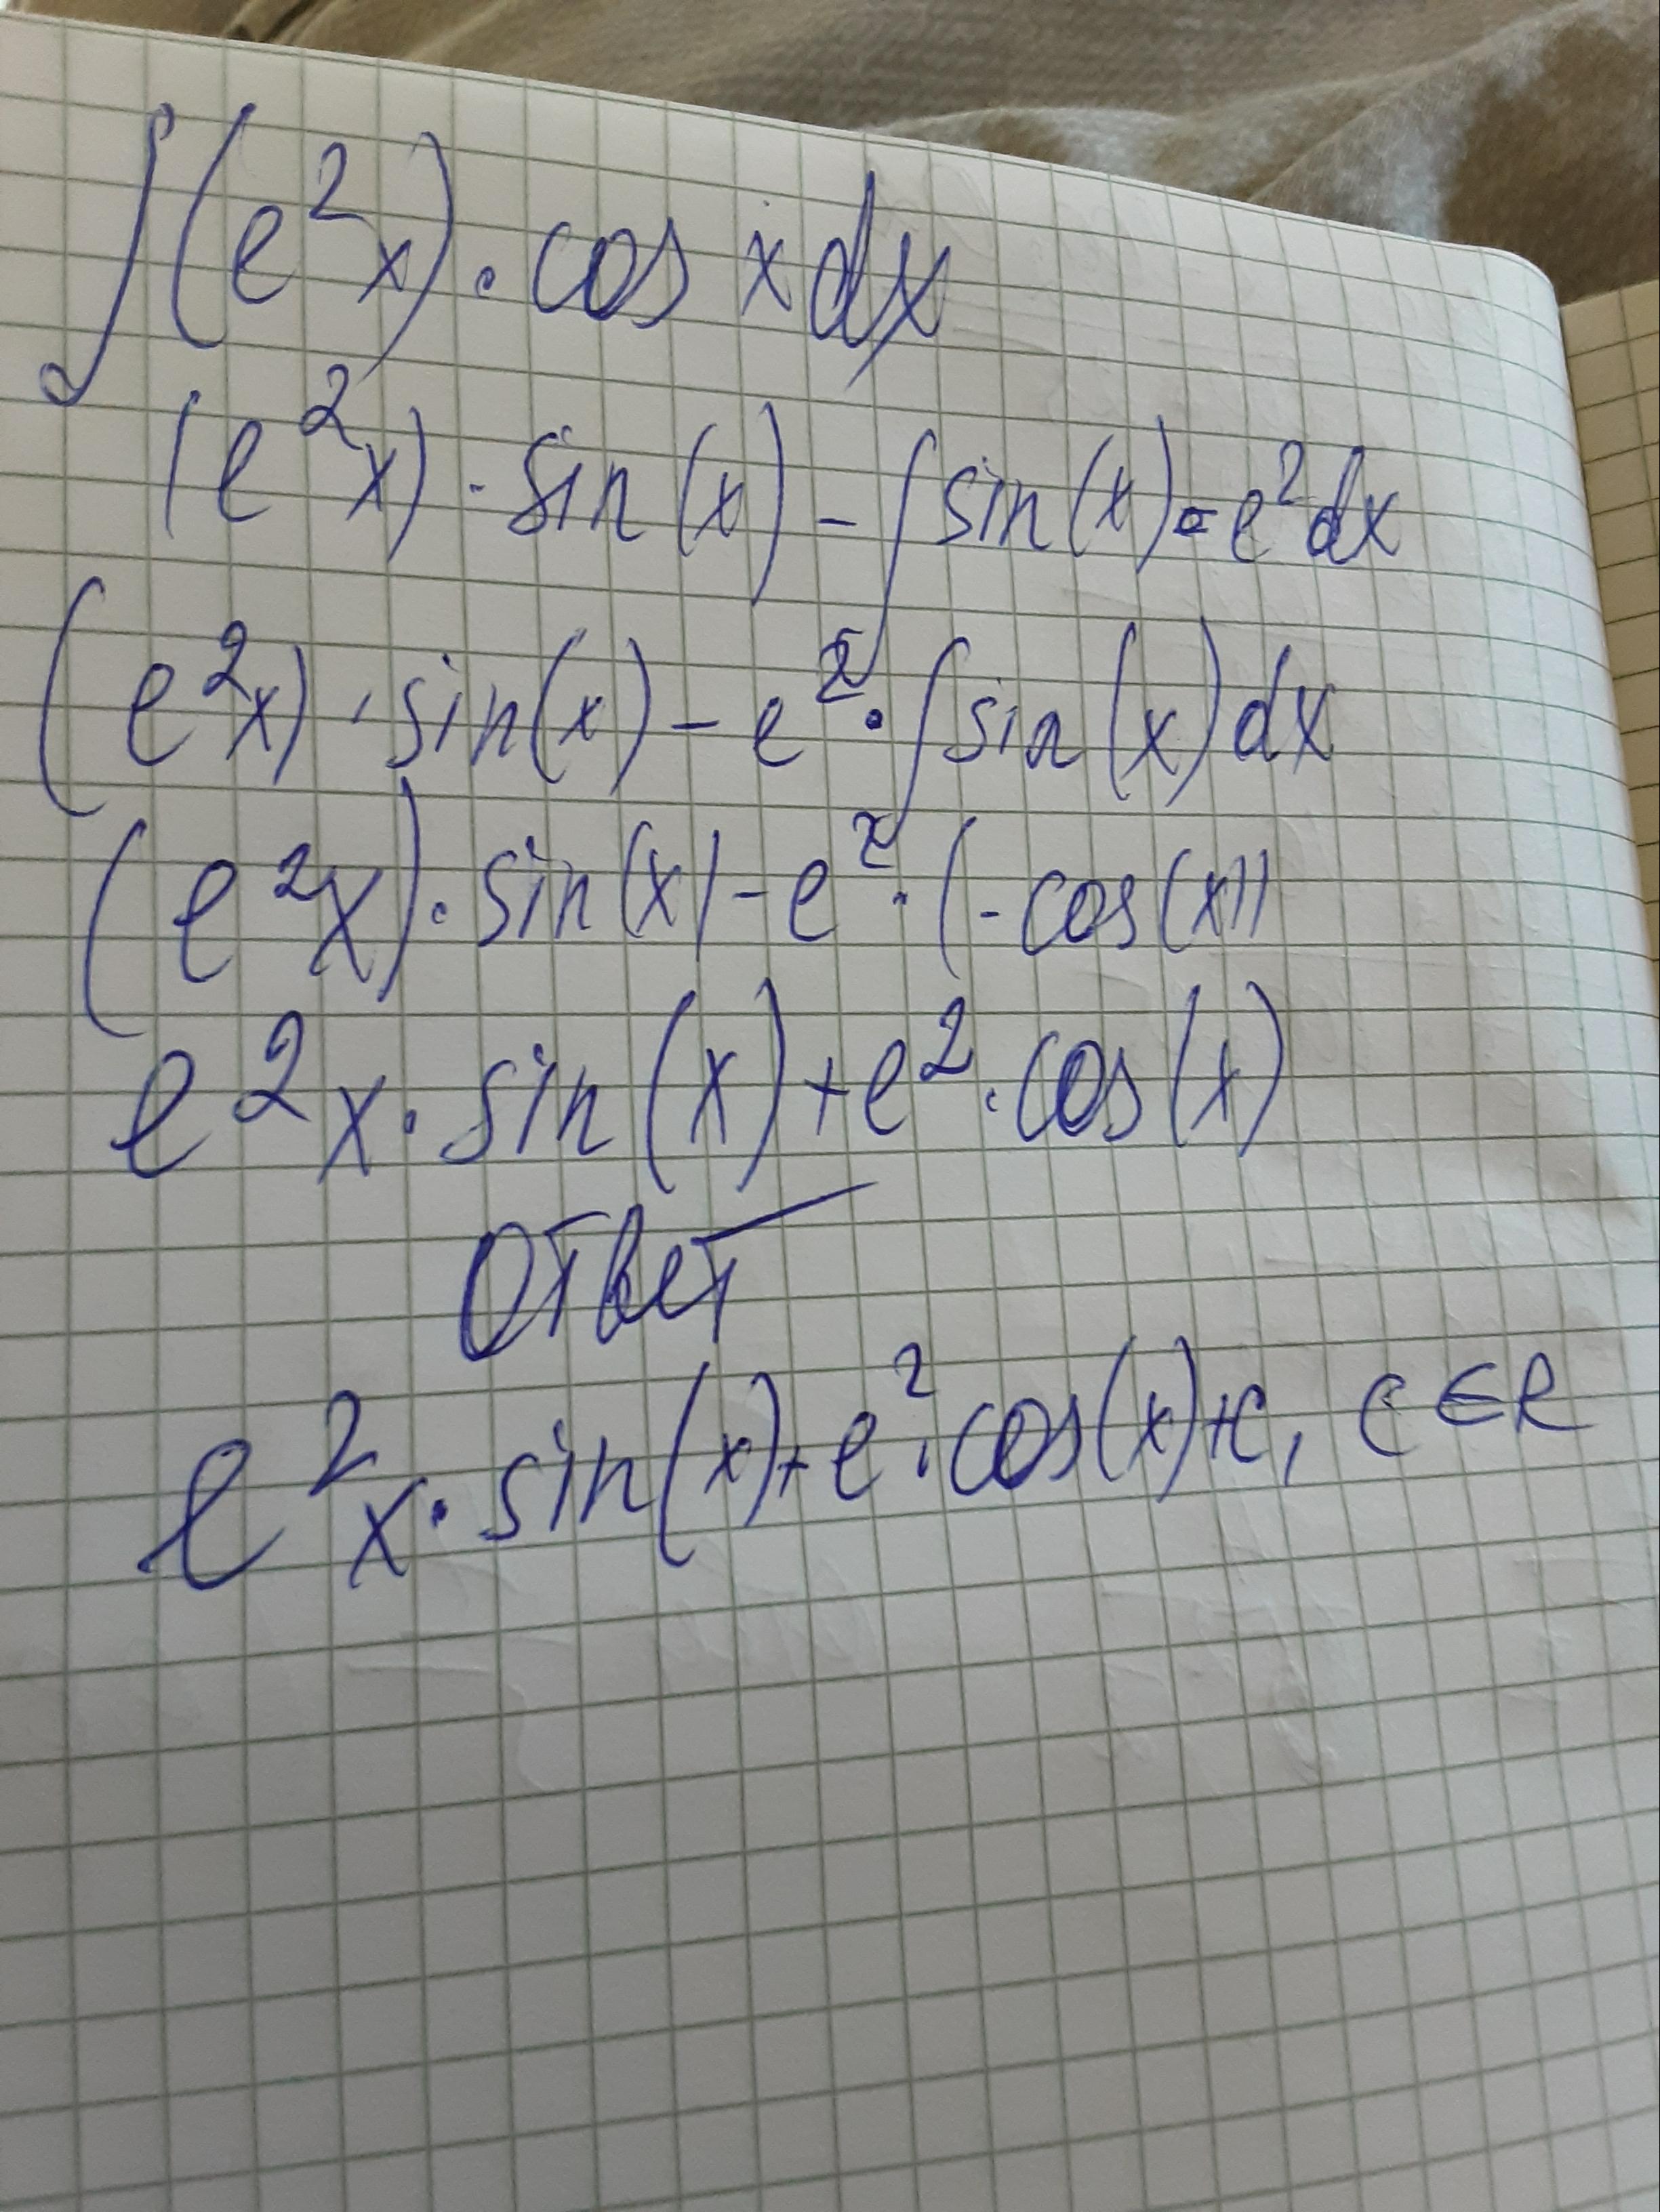 ∫(e²x)·cos x dx
(e²x)·sin(x)-∫sin(x)·e²dx
(e²x)·sin(x)-e²·∫sin(x)dx
(e²x)·sin(x)-e²·(-cos(x))
e²x·sin(x)+e²·cos(x)
Ответ
e²x·sin(x)+e²·cos(x)+c, c∈R